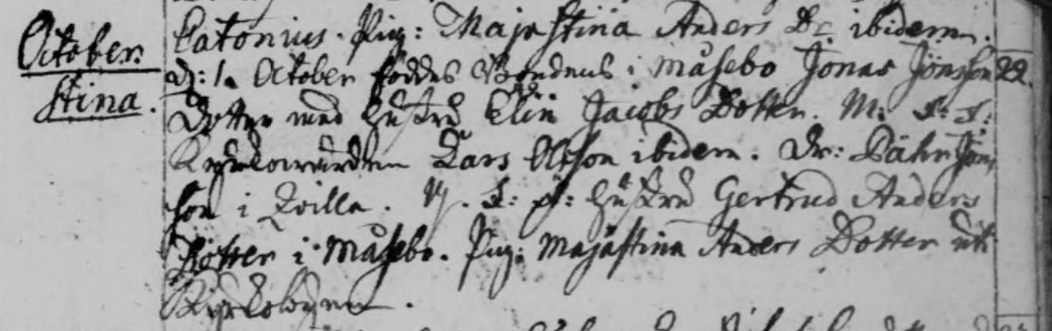 October.
Stina.
Catonius. Pig: Maja Stina Anders Dr ibidem.
d: 1. October föddes Bondens i Måsebo Jonas Jönsson 22.
Dotter med hustru Elin Jacobs Dotter. M. F. F:
Kyrkowärden Lars Olsson ibidem. Dr: Pähr Jöns
son i Qvilla. M. F. hustru Gertrud Anders
Dotter i Måsebo. Pig: Maja Stina Anders Dotter uti
Kyrkobyn.